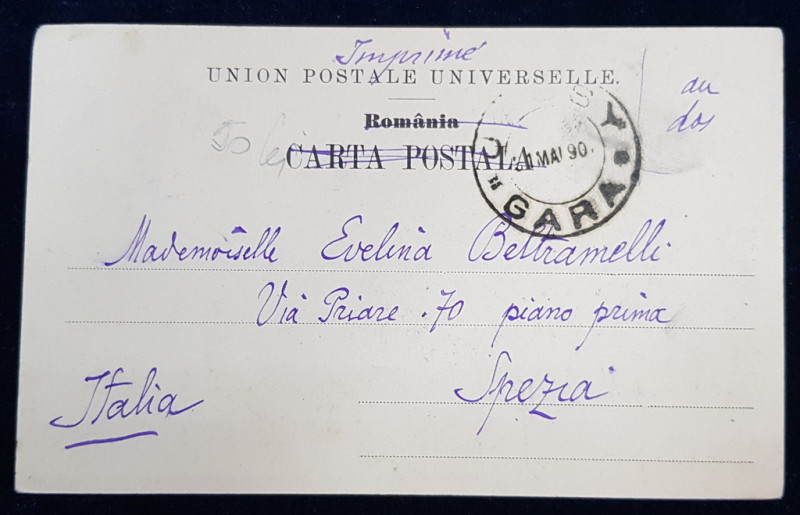 Imprimé
UNION POSTALE UNIVERSELLE.
au
dos
România
CARTA POSTALA
1 MAI 90.
GARA
Mademoiselle Evelina Beltramelli
Via Priare . 70 piano prima
Spezia
Italia